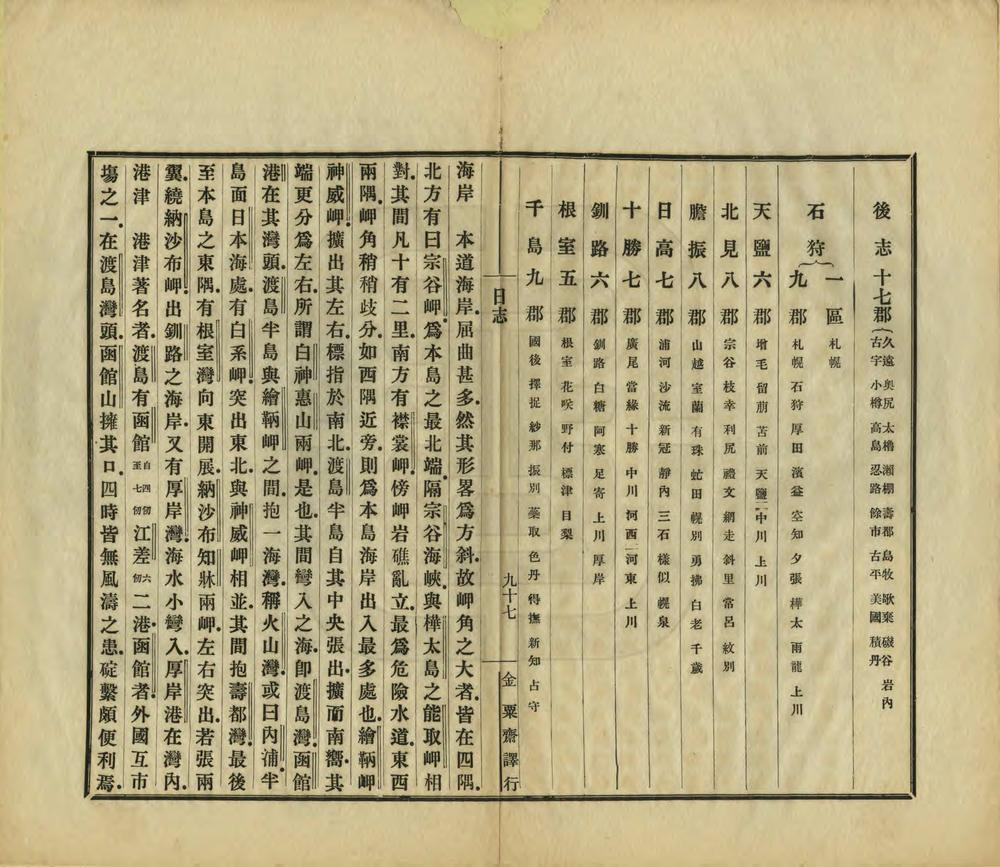 後志十七郡 久遠 奥尻 太櫓 瀨棚 壽都 島牧 歌棄 磯谷 岩內
古宇 小樽 高島 忍路 餘市 古平 美國 積丹
石狩 一區 札幌
九郡 札幌 石狩 厚田 濱益 空知 夕張 樺太 雨龍 上川
天鹽六郡 增毛 留萠 苫前 天鹽 中川 上川
北見八郡 宗谷 枝幸 利尻 禮文 網走 斜里 常呂 紋別
膽振八郡 山越 室蘭 有珠 虻田 幌別 勇拂 白老 千歲
日高七郡 浦河 沙流 新冠 靜內 三石 樣似 幌泉
十勝七郡 廣尾 當緣 十勝 中川 河西 河東 上川
釧路六郡 釧路 白糖 阿寒 足寄 上川 厚岸
根室五郡 根室 花咲 野付 標津 目梨
千島九郡 國後 擇捉 紗那 振別 蘂取 色丹 得撫 新知 占守
日志
九十七
金粟齋譯行
海岸 本道海岸屈曲甚多然其形畧爲方斜故岬角之大者皆在四隅
北方有曰宗谷岬爲本島之最北端隔宗谷海峽與樺太島之能取岬相
對其間凡十有二里南方有襟裳岬傍岬岩礁亂立最爲危險水道東西
兩隅岬角稍稍歧分如西隅近旁則爲本島海岸出入最多處也繪鞆岬
神威岬擴出其左右標指於南北渡島半島自其中央張出擴而南嚮其
端更分爲左右所謂白神惠山兩岬是也其間彎入之海卽渡島灣函館
港在其灣頭渡島半島與繪鞆岬之間抱一海灣稱火山灣或曰內浦半
島面日本海處有白系岬突出東北與神威岬相並其間抱壽都灣最後
至本島之東隅有根室灣向東開展納沙布知牀兩岬左右突出若張兩
翼繞納沙布岬出釧路之海岸又有厚岸灣海水小彎入厚岸港在灣內
港津 港津著名者渡島有函館自四仞至七仞江差六仞二港函館者外國互市
塲之一在渡島灣頭函館山擁其口四時皆無風濤之患碇繫頗便利焉